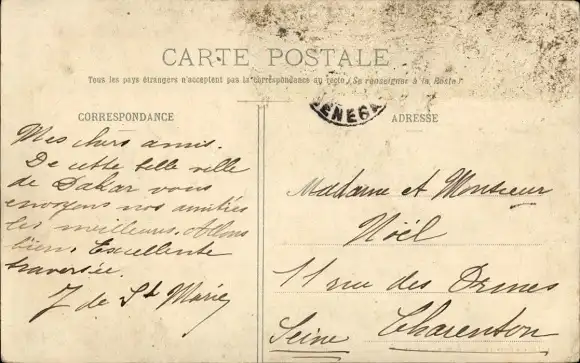 CARTE POSTALE
Tous les pays étrangers n'acceptent pas la correspondance au recto (Se renseigner à la Poste)
SENEGA
CORRESPONDANCE
Mes chers amis.
De cette belle ville
de Dakar vous
envoyons nos amitiés
les meilleures. Allons
bien. Excellente
traversée.
J de Ste Marie
ADRESSE
Madame et Monsieur
Noël
11 rue des Ormes
Charenton
Seine